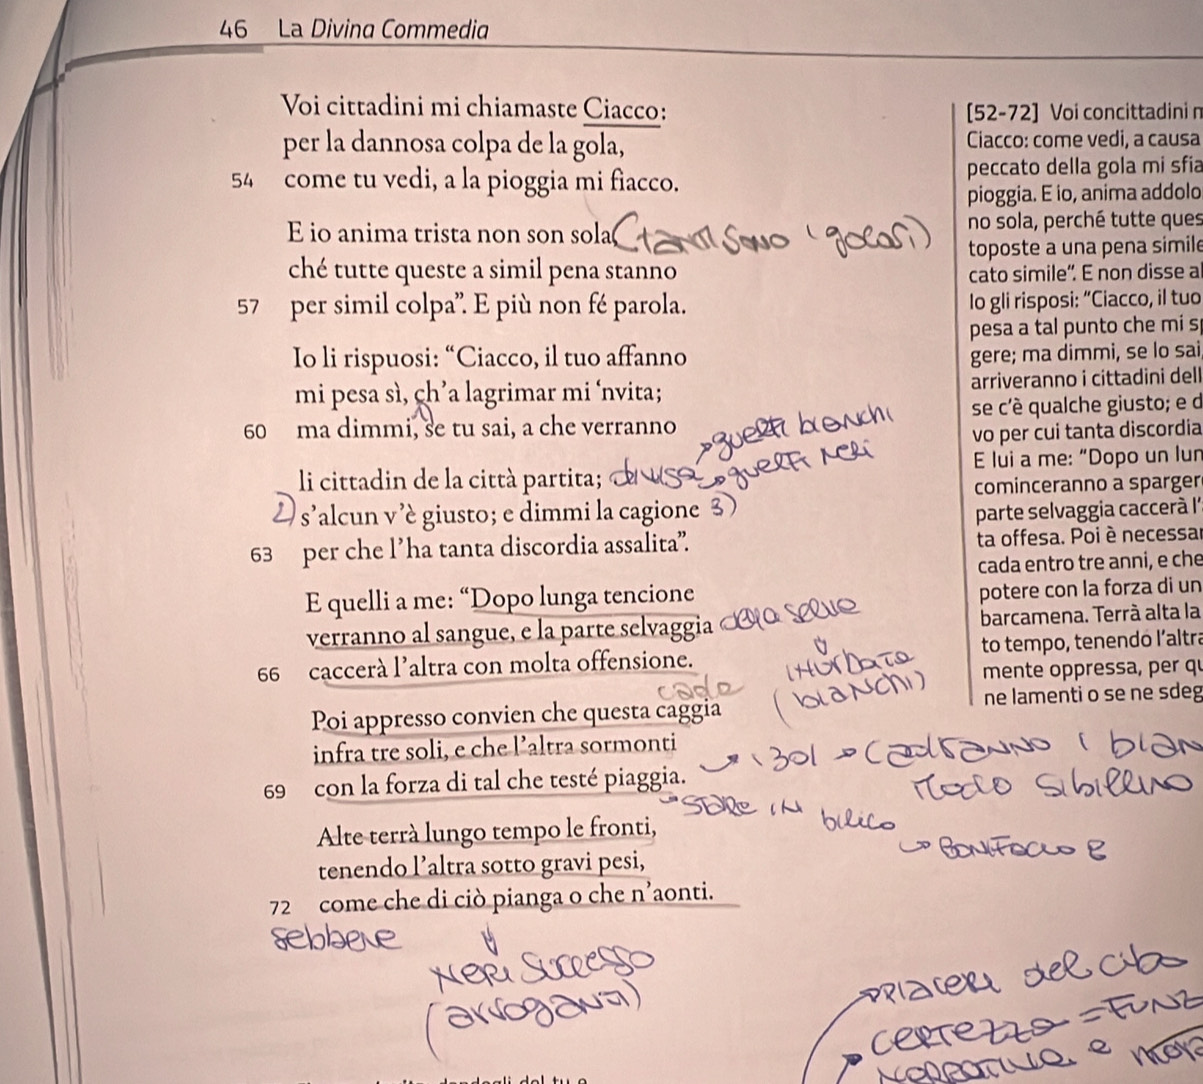 46 La Divina Commedia
Voi cittadini mi chiamaste Ciacco:
per la dannosa colpa de la gola,
54 come tu vedi, a la pioggia mi fiacco.
E io anima trista non son sola, (tanti sono i golosi)
ché tutte queste a simil pena stanno
57 per simil colpa”. E più non fé parola.
Io li rispuosi: “Ciacco, il tuo affanno
mi pesa sì, ch’a lagrimar mi ‘nvita;
1)
60 ma dimmi, se tu sai, a che verranno
guelfi bianchi
li cittadin de la città partita; divisa guelfi neri
2) s’alcun v’è giusto; e dimmi la cagione 3)
63 per che l’ha tanta discordia assalita”.
E quelli a me: “Dopo lunga tencione
verranno al sangue, e la parte selvaggia della selva
66 caccerà l’altra con molta offensione.
inurbata
(bianchi)
cade
Poi appresso convien che questa caggia
infra tre soli, e che l’altra sormonti
1301 cadranno i bian
69 con la forza di tal che testé piaggia.
modo sibillino
stare in bilico
Bonifacio 8
Alte terrà lungo tempo le fronti,
tenendo l’altra sotto gravi pesi,
72 come che di ciò pianga o che n’aonti.
sebbene
neri successo
(arroganti)
[52-72] Voi concittadini m
Ciacco: come vedi, a causa
peccato della gola mi sfia
pioggia. E io, anima addolo
no sola, perché tutte ques
toposte a una pena simile
cato simile”. E non disse al
Io gli risposi: “Ciacco, il tuo
pesa a tal punto che mi sp
gere; ma dimmi, se lo sai,
arriveranno i cittadini dell
se c’è qualche giusto; e d
vo per cui tanta discordia
E lui a me: “Dopo un lun
cominceranno a sparger
parte selvaggia caccerà l’
ta offesa. Poi è necessar
cada entro tre anni, e che
potere con la forza di un
barcamena. Terrà alta la
to tempo, tenendo l’altra
mente oppressa, per qu
ne lamenti o se ne sdeg
piaceri del cibo
certezza = funz
narrativa e mora